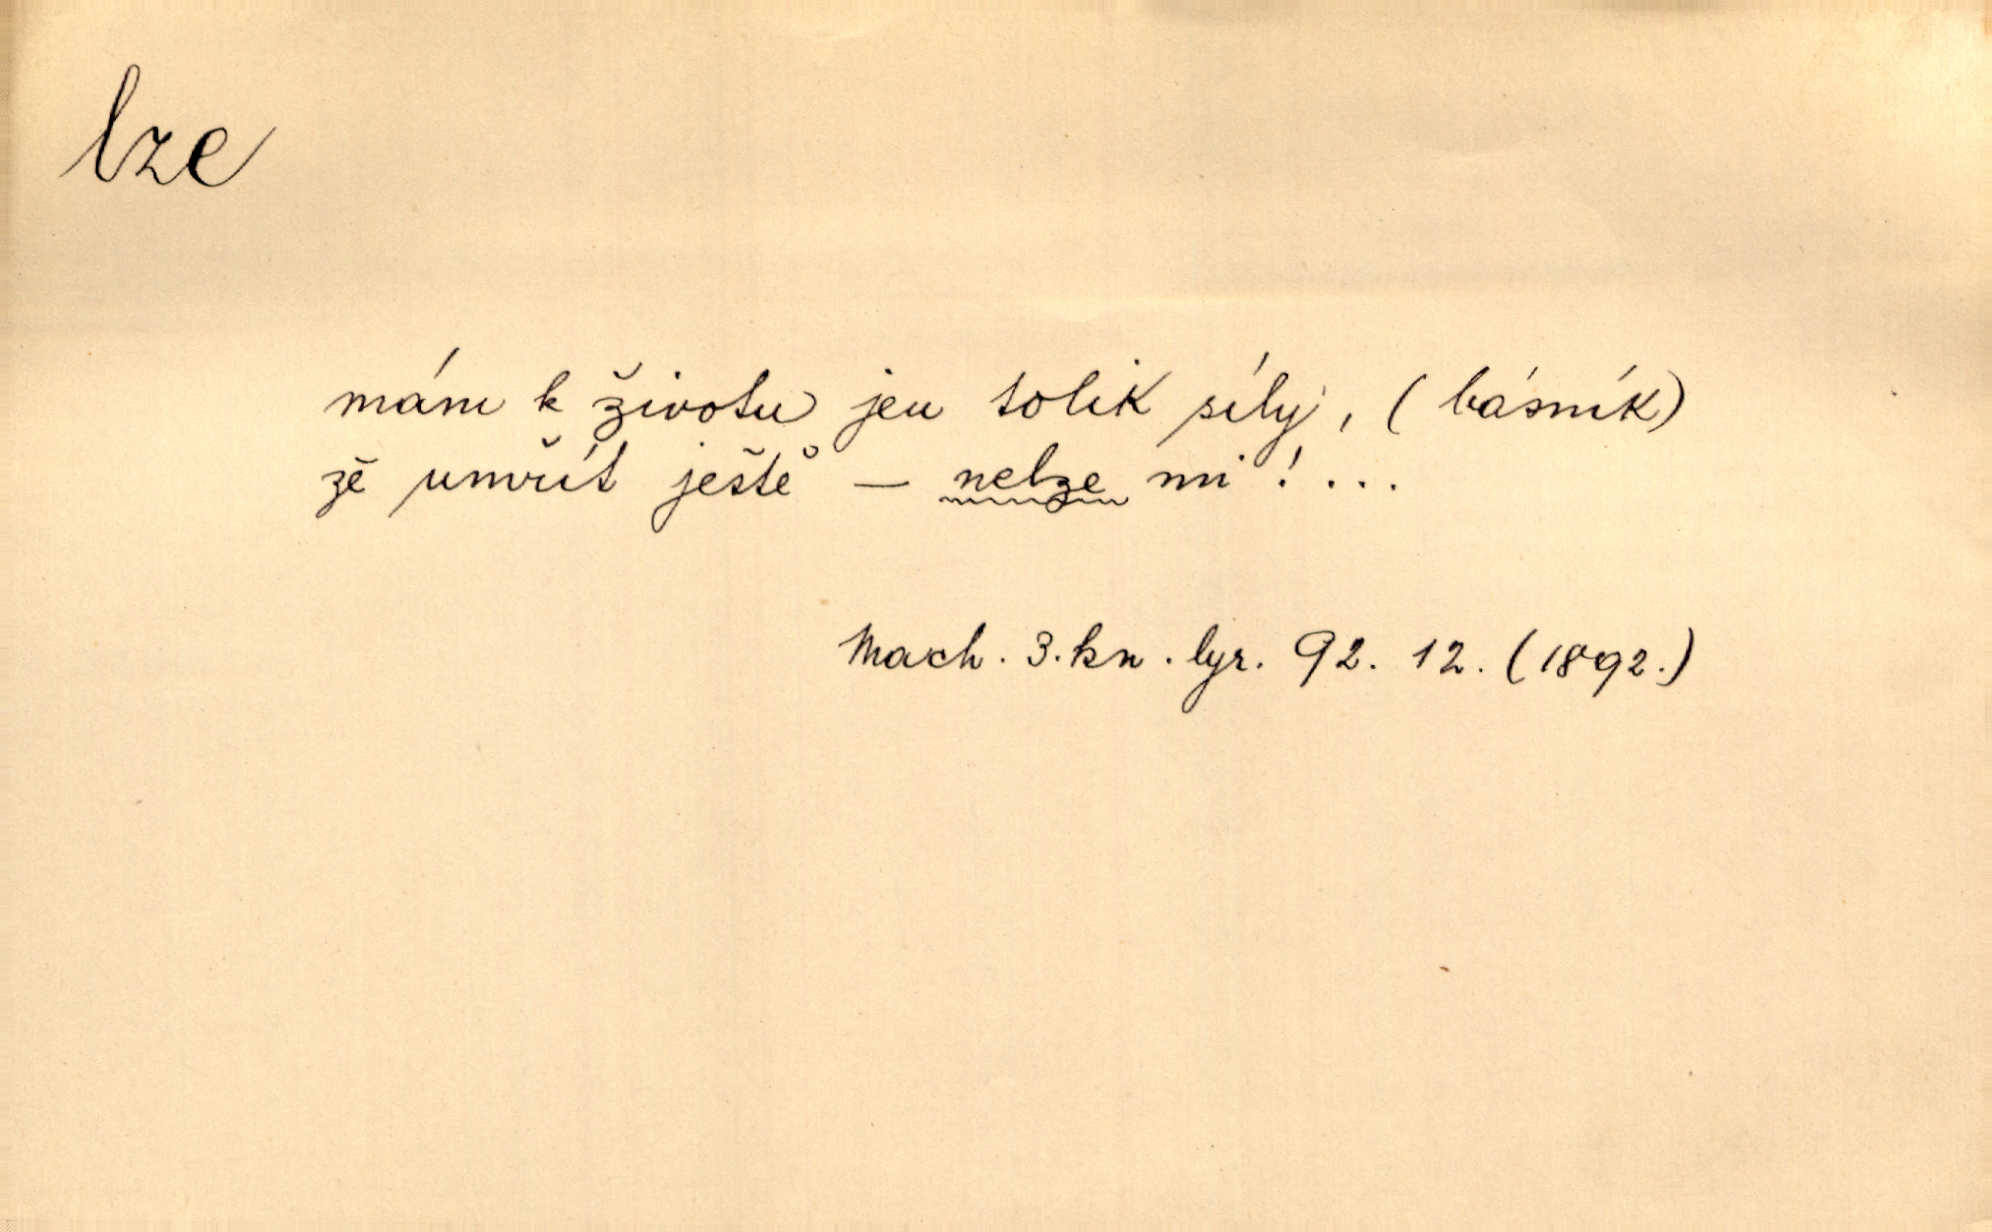 lze
mám k životu jen tolik síly, (básník)
že umřít ještě — nelze mi! ...
Mach. 3. kn. lyr. 92. 12. (1892.)